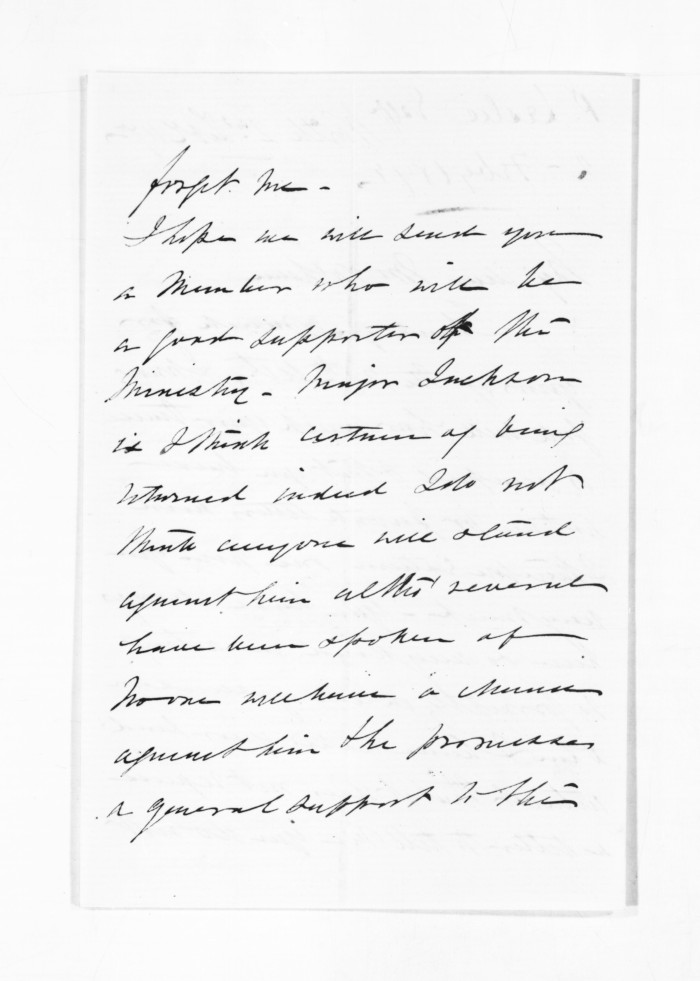 forget me -
I hope we will send you
a Member who will be
a good supporter of the
Ministry - Major Jackson
is I think certain of being
returned indeed I do not
think anyone will stand
against him altho' several
have been spoken of
No one will have a chance
against him & he promises
a general support to the